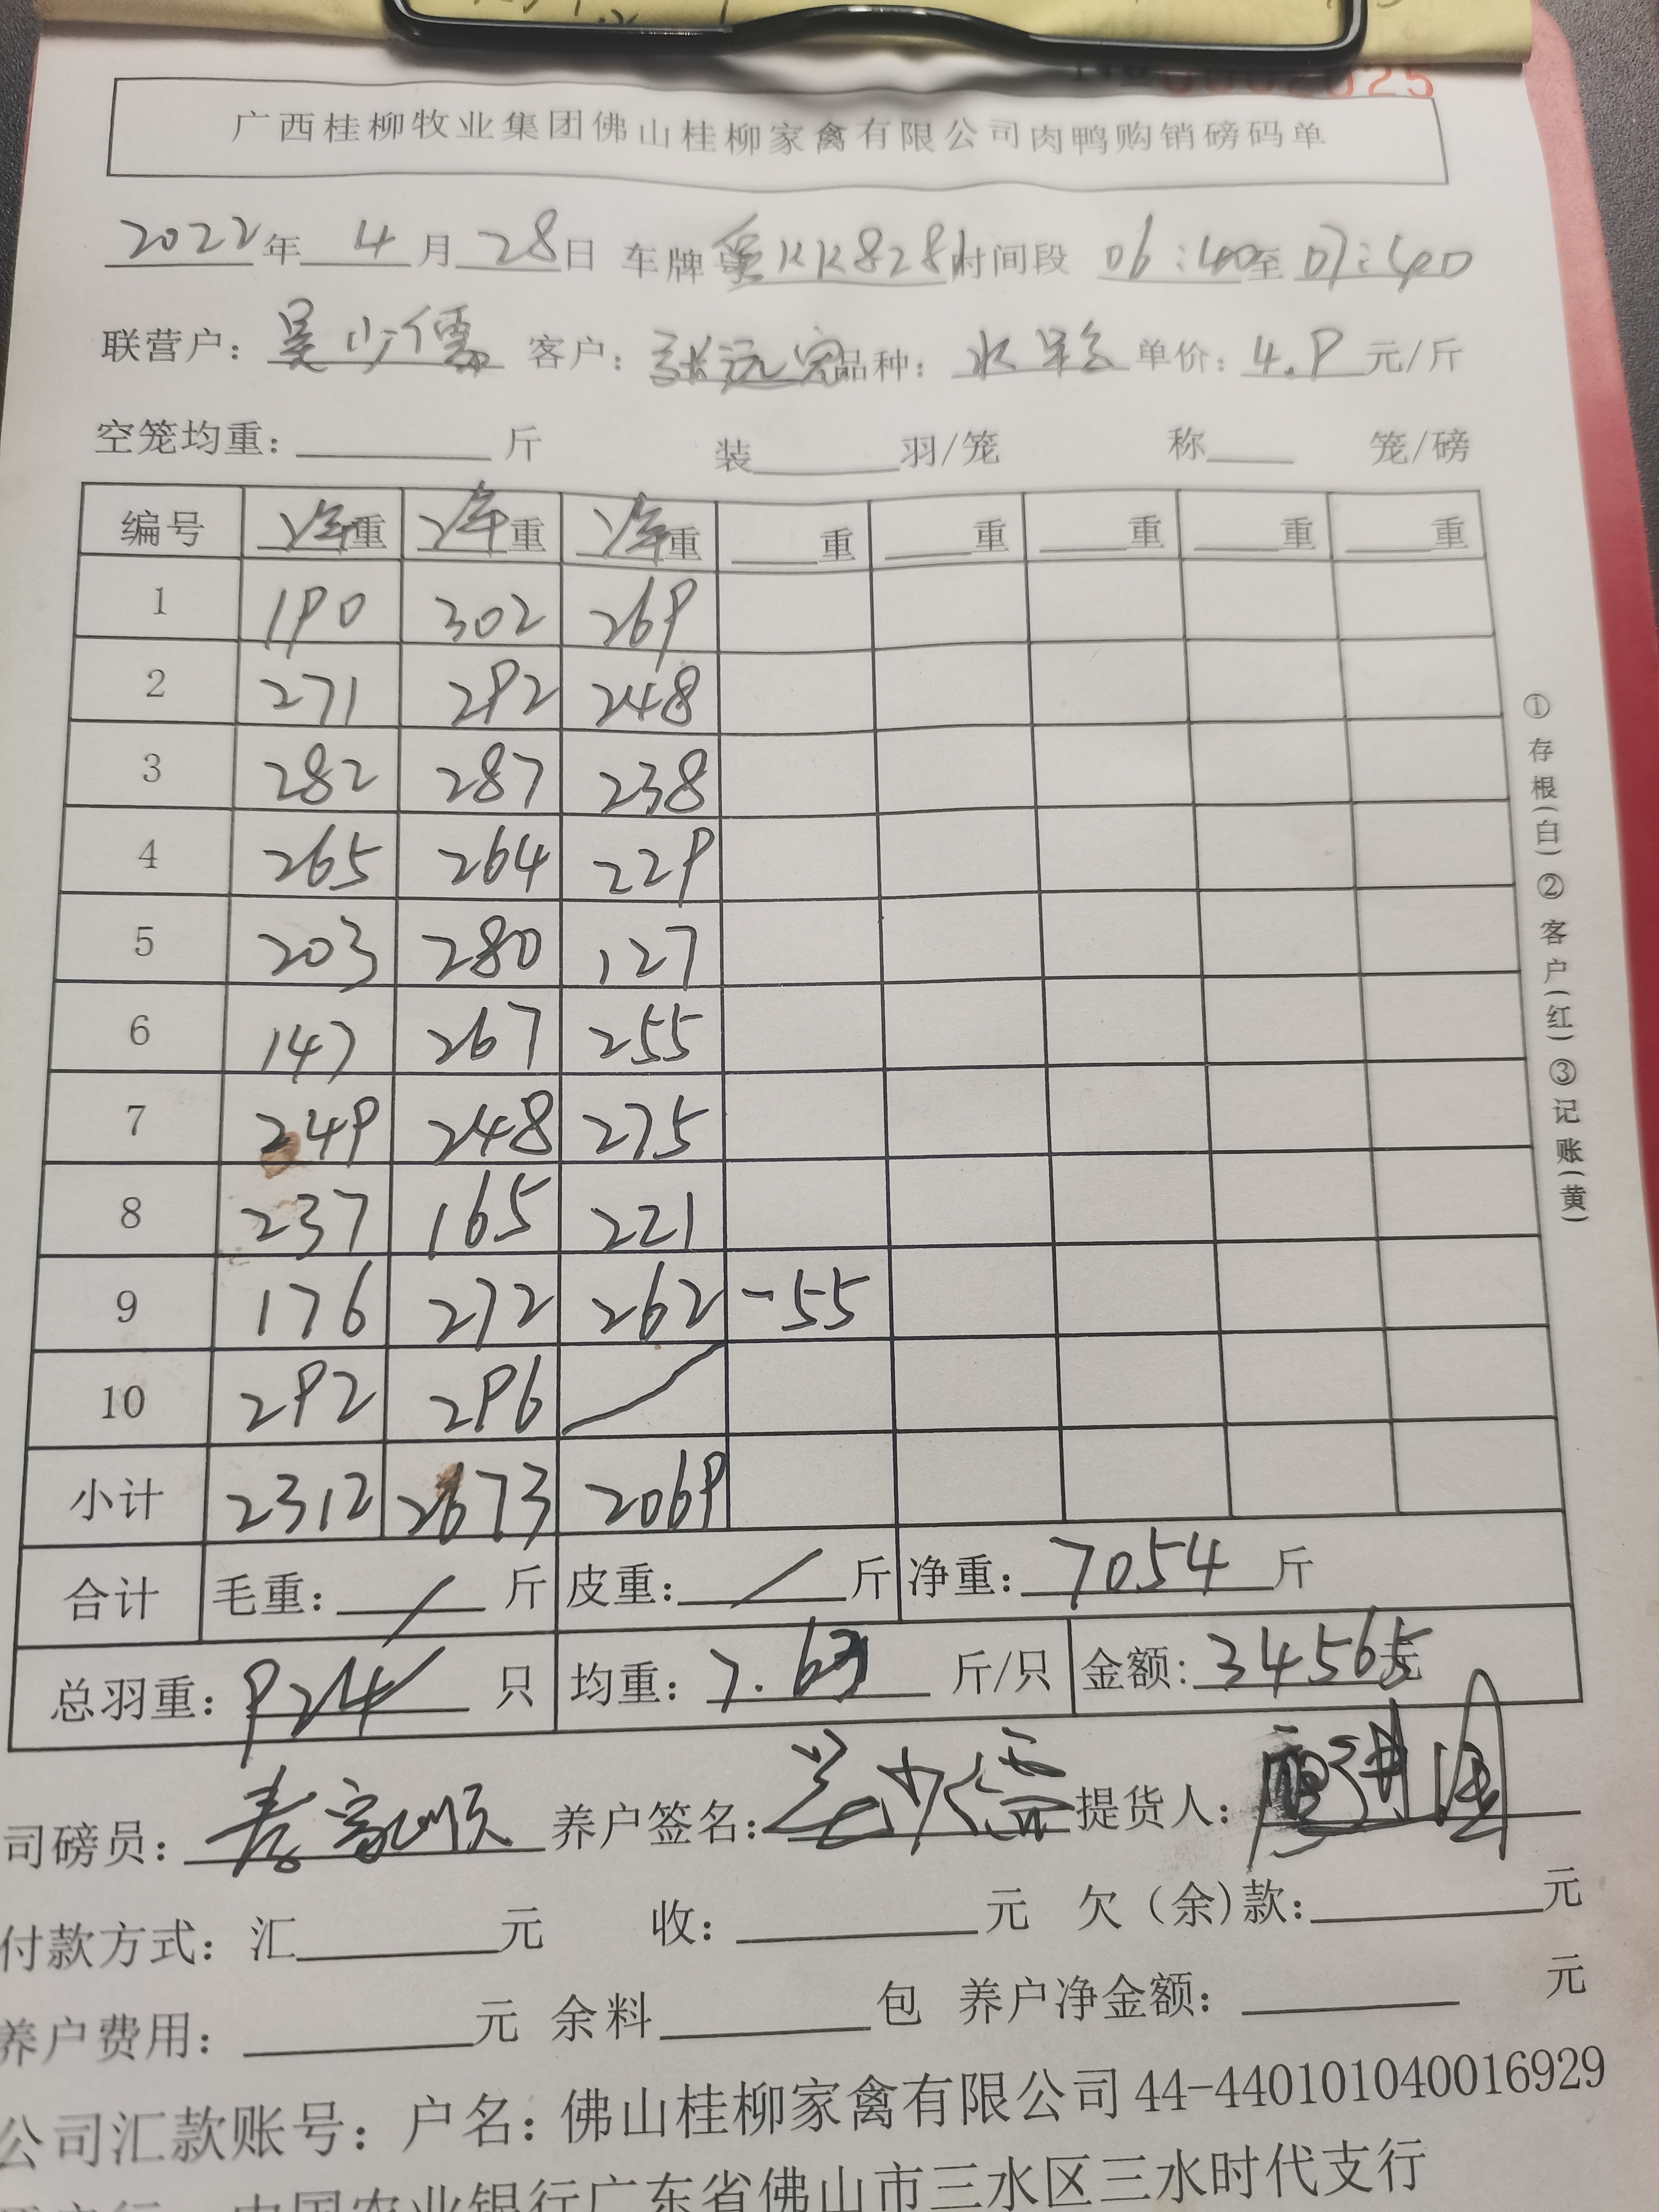 广西桂柳牧业集团佛山桂柳家禽有限公司肉鸭购销磅码单
2022年 4月 28日 车牌 粤KK828 时间段 06:40至07:40
联营户: 吴少儒 客户: 张远 品种: 水 单价: 4.9元/斤
空笼均重: 斤 装 羽/笼 称 笼/磅
编号 净重 净重 净重 重 重 重 重 重
1 190 302 269
2 271 292 248
3 282 287 238
4 265 264 229
5 203 280 127
6 147 267 255
7 249 248 275
8 237 165 221
9 176 272 262 -55
10 292 296
小计 2312 2673 2069
合计 毛重: / 斤 皮重: / 斤 净重: 7054 斤
总羽重: 924 只 均重: 7.63 斤/只 金额: 34565元
司磅员: 家顺 养户签名: 吴少儒 提货人:
付款方式: 汇 元 收: 元 欠(余)款: 元
养户费用: 元 余料 包 养户净金额: 元
公司汇款账号: 户名: 佛山桂柳家禽有限公司 44-440101040016929
中国农业银行广东省佛山市三水区三水时代支行
①存根(白)②客户(红)③记账(黄)